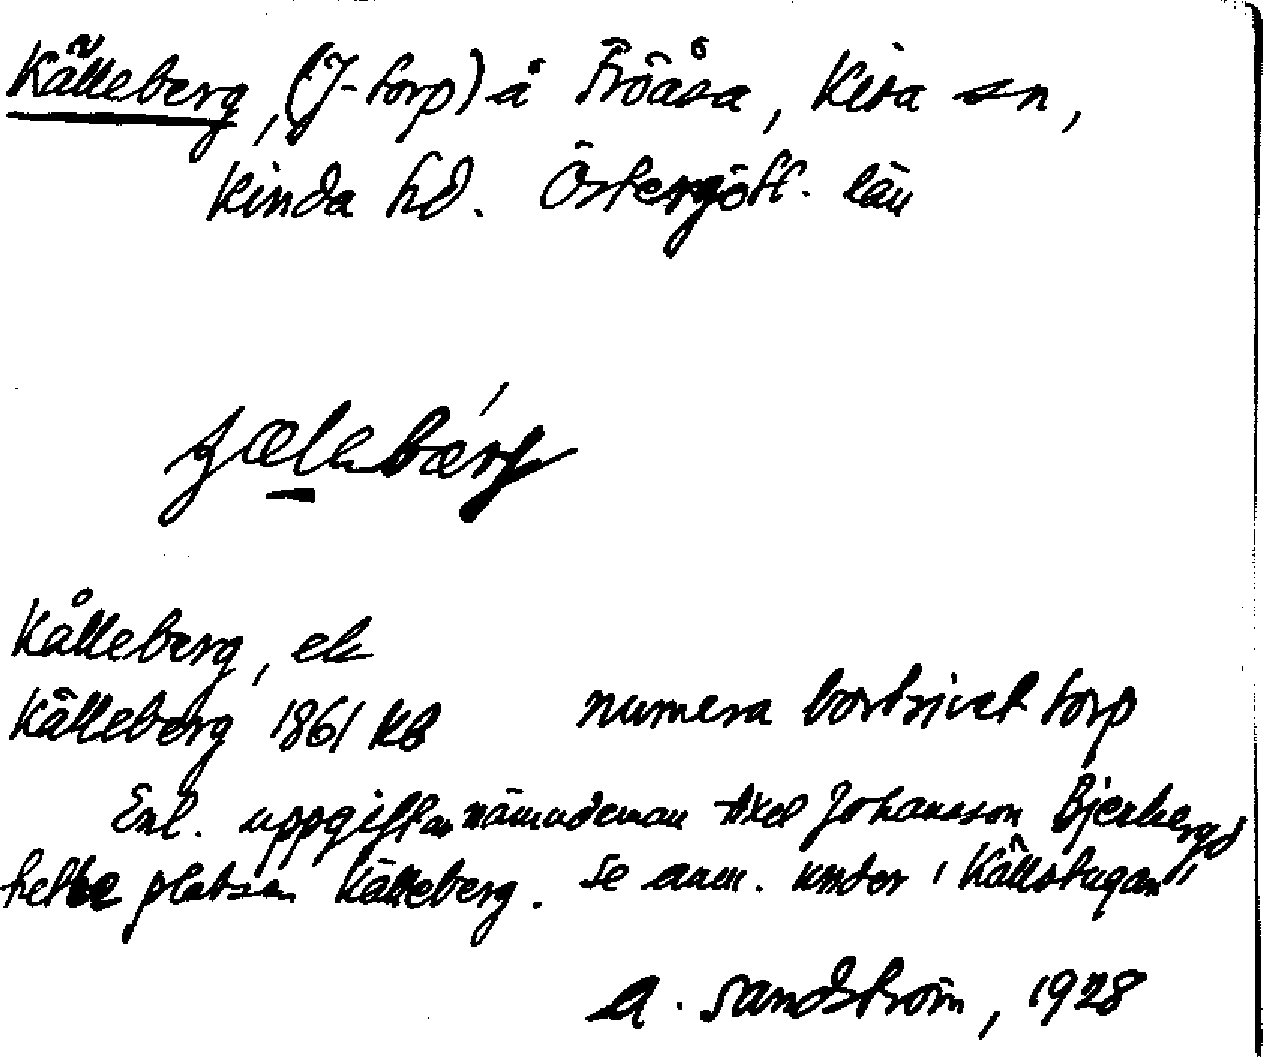 Källeberg, (J-torp) å Fröåsa, Kisa sn,
Kinda hd. Östergötl. län
Kålleberg, ek
Källeberg 1861 KB numera bortrivet torp
Enl. uppgift av nämndeman Axel Johansson Bjerkeryd
hette platsen Källeberg. Se anm. under "Källstugan"
A. Sandström, 1928